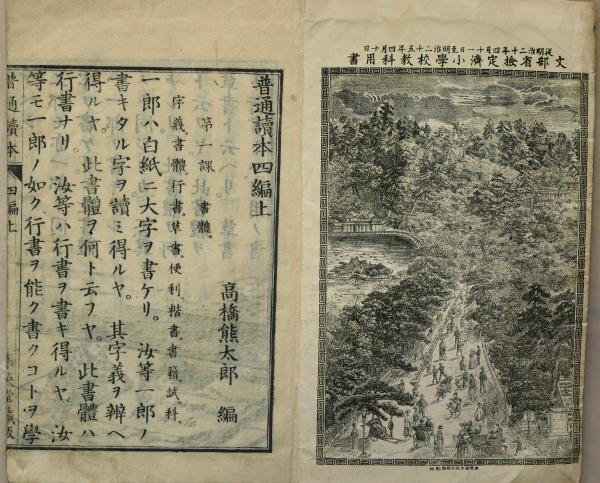 從明治二十年四月十一日至明治二十五年四月十日
文部省檢定濟小學校教科用書
普通讀本四編上
高橋熊太郎 編
第一課 書體。
字義。書體。行書。草書。便利。楷書。書籍。試科。
一郎ハ白紙ニ大字ヲ書ケリ。汝等一郎ノ
書キタル字ヲ讀ミ得ルヤ。其字義ヲ辨ヘ
得ルヤ。此書體ヲ何ト云フヤ。此書體ハ
行書ナリ。汝等ハ行書ヲ書キ得ルヤ。汝
等モ一郎ノ如ク行書ヲ能ク書クコトヲ學
普通讀本 四編上